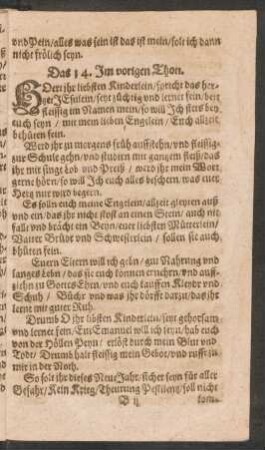 vnd Pein/ alles was sein ist das ist mein/ solt ich dann
nicht frölich seyn.
Das 14. Im vorigen Thon.
HOert jhr liebsten Kinderlein/ spricht das
JEsulein/ seyt züchtig vnd lernet fein/ bett
fleissig im Namen mein/ so will Jch stets bey
euch seyn / mit mein lieben Engelein/ Euch allzeit
behüten fein.
Werd jhr zu morgens früh auffstehn/ vnd fleissig
zur Schule gehn/ vnd studirn mit gantzem fleiß/ das
jhr mit singt Lob vnd Preiß / werd jhr mein Wort
gerne hörn/ so will Jch euch alles beschern/ was ewer
Hertz nur wird begern.
Es solln euch meine Engelein/ allzeit gleyten auß
vnd ein/ das jhr nicht stost an einen Stein/ auch nit
fallt vnd brächt ein Beyn/ ewr liebsten Mütterlein/
Vatter Brüdr vnd Schwesterlein / sollen sie auch
bhüten fein.
Euern Eltern will ich gebn / gut Nahrung vnd
langes Lebn / das sie euch konnen ernehrn/ vnd auff-
ziehn zu Gottes Ehrn/ vnd euch kauffen Kleydr vnd
Schuh / Büchr vnd was jhr dörfft darzu/ das jhr
lernt mit guter Ruh.
Drumb O jhr libsten Kinderlein/ seyt gehorsam
vnd lernet fein/ Eur Emanuel will ich seyn/ hab euch
von der Höllen Peyn / erlöst durch mein Blut vnd
Todt/ Drumb halt fleissig mein Gebot/ vnd rufft zu
mir in der Noth.
So solt jhr dieses Neu Jahr/ sicher seyn für aller
Gefahr/ Kein Krieg/ Theurung Pestilentz/ soll nicht
B ij kom-